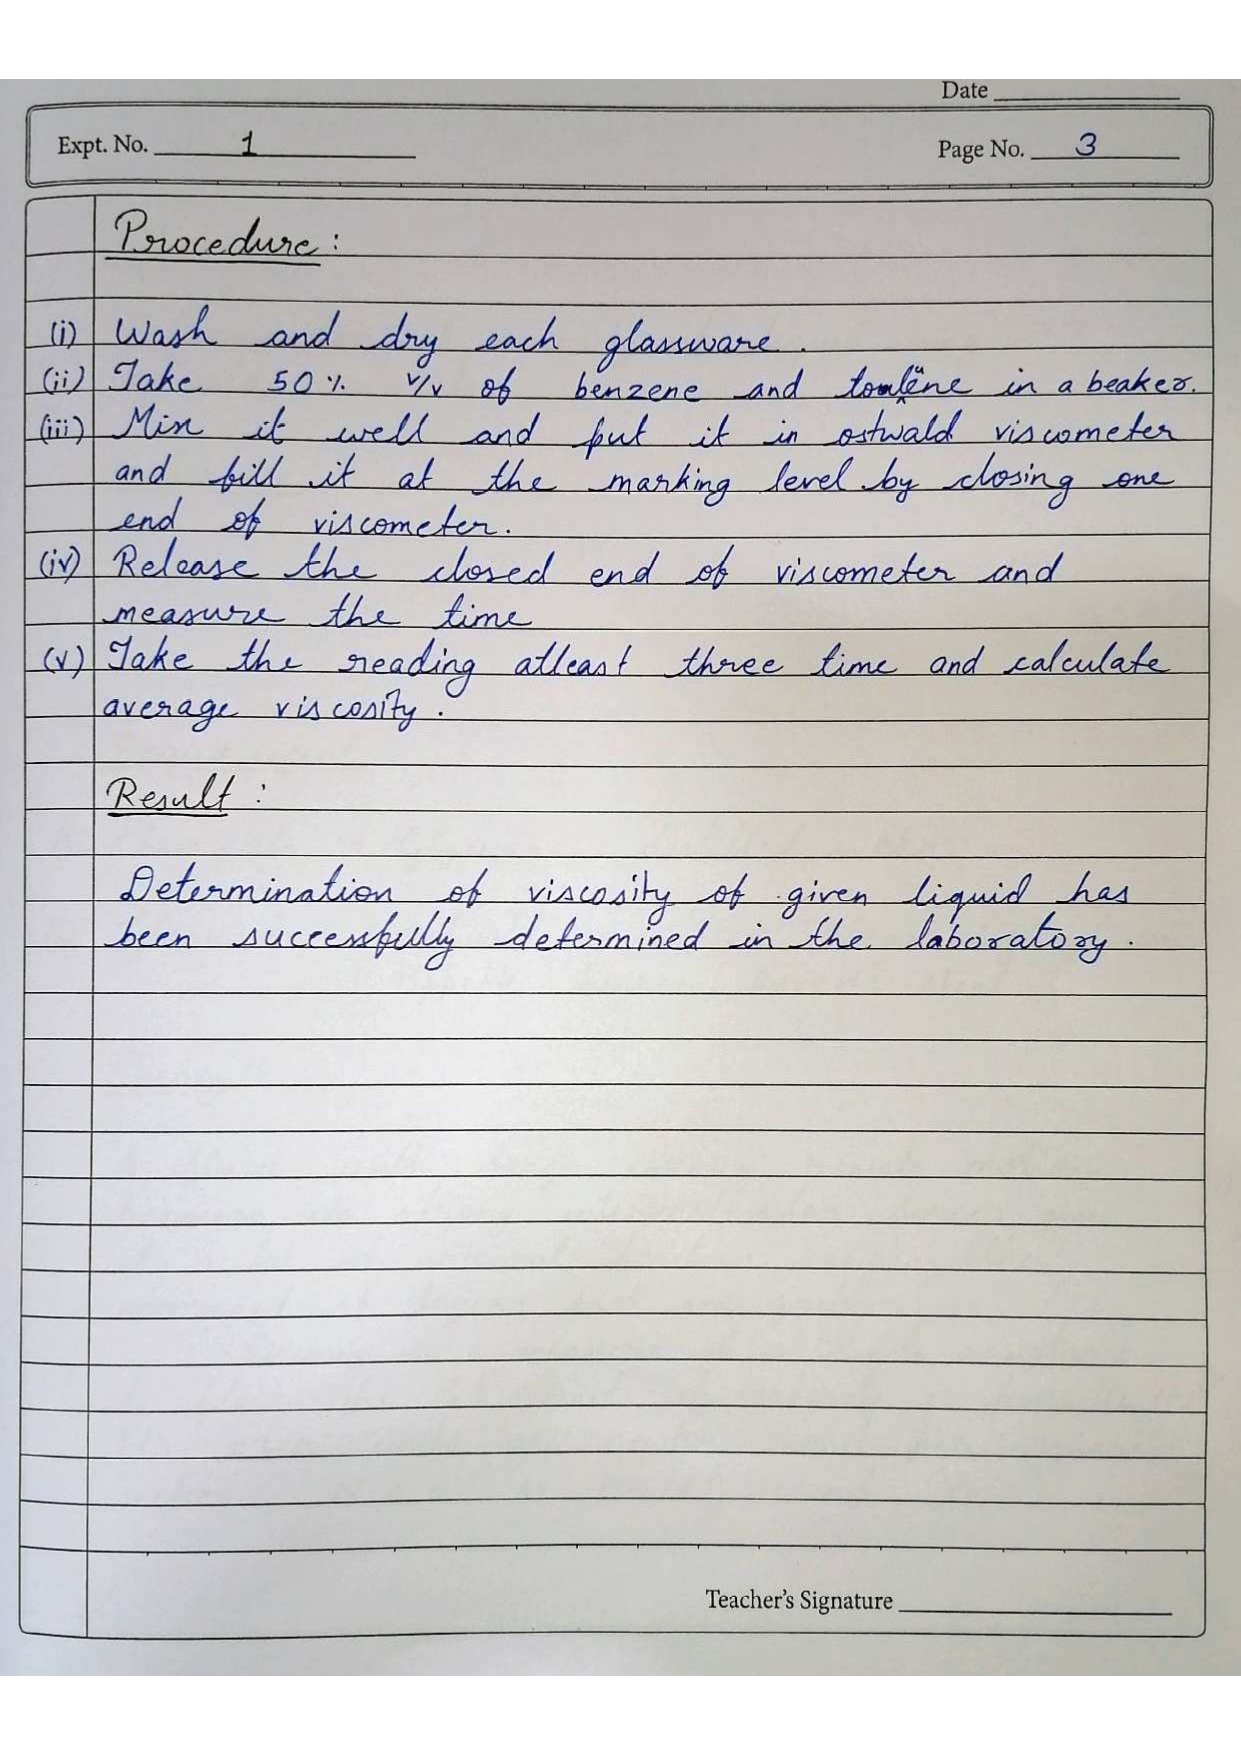 Date
Expt. No. 1
Page No. 3
Procedure :
(i) Wash and dry each glassware.
(ii) Take 50% v/v of benzene and in a beaker.
(iii) Mix it well and put it in ostwald viscometer
and fill it at the marking level by closing one
end of viscometer.
(iv) Release the closed end of viscometer and
measure the time
(v) Take the reading atleast three time and calculate
average viscosity.
Result :
Determination of viscosity of given liquid has
been successfully determined in the laboratory.
Teacher's Signature